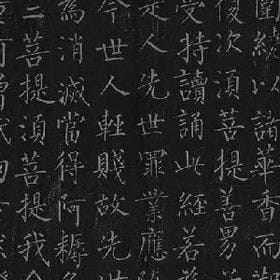 繞以諸華香而
復次須菩提善男
受持讀誦此經若
是人先世罪業應
今世人輕賤故先
為消滅當得阿耨
三菩提須菩提我